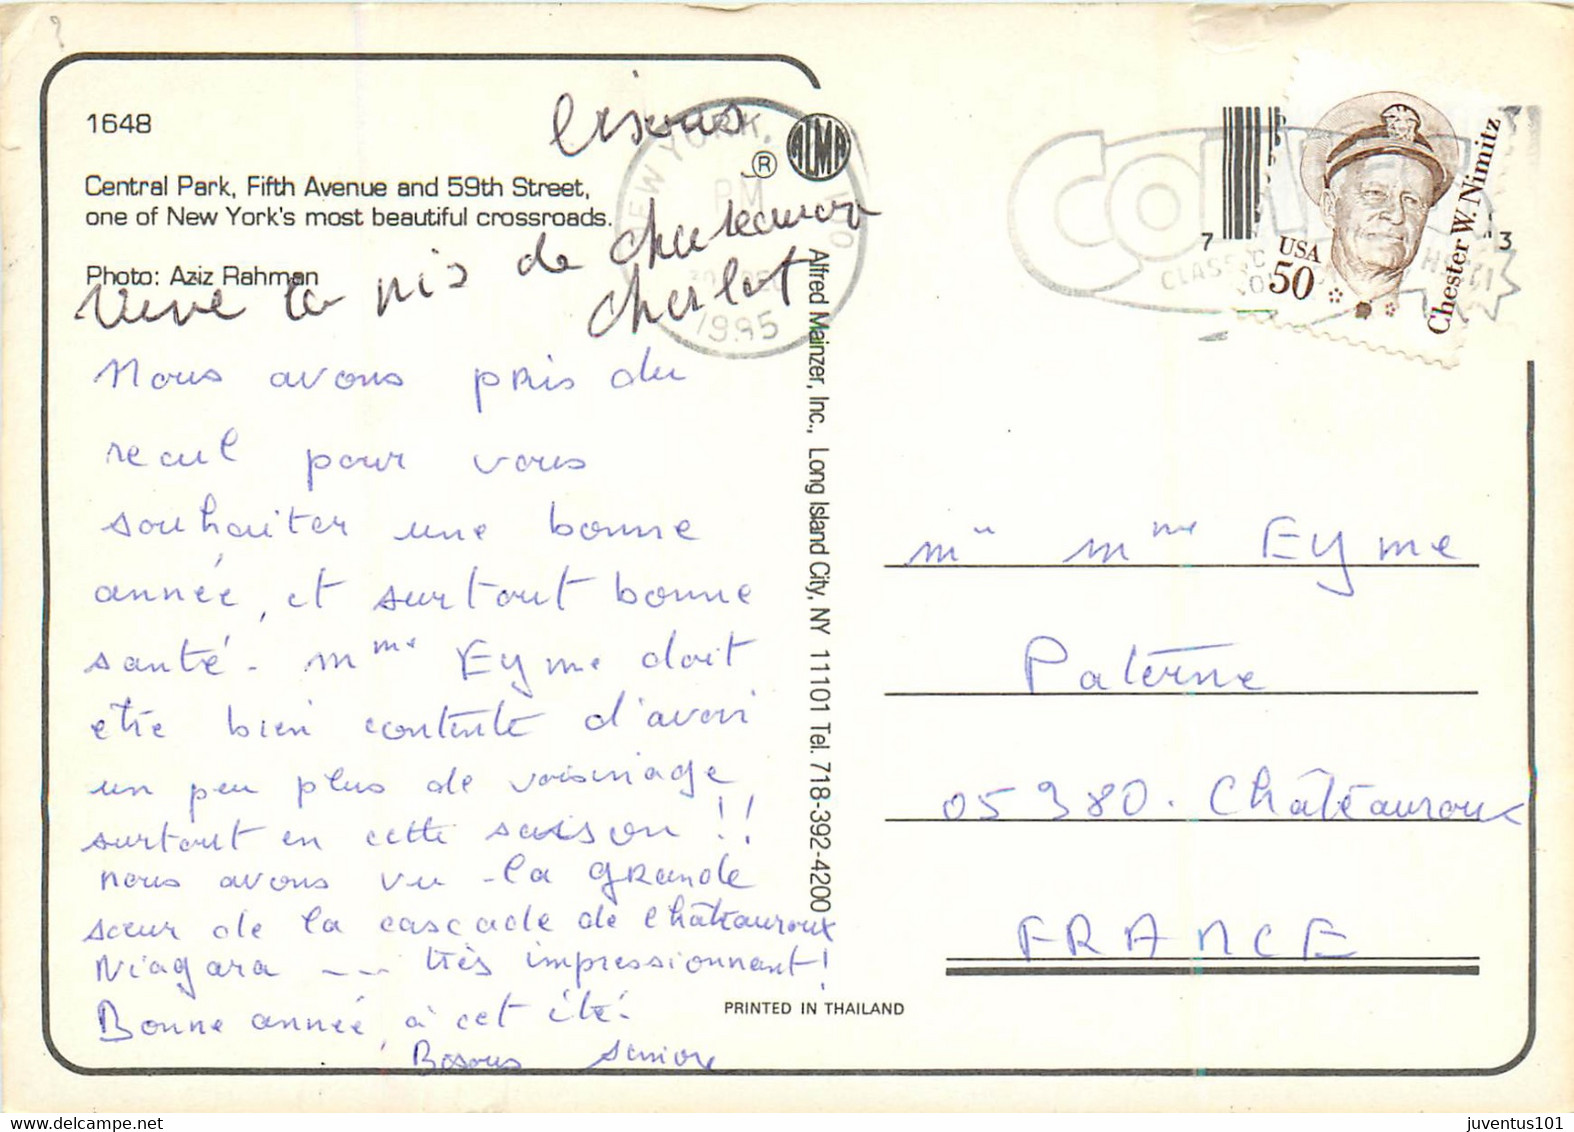 1648
Central Park, Fifth Avenue and 59th Street,
one of New York's most beautiful crossroads.
Photo: Aziz Rahman
bisous
vive la de chateauroux
charlot
Nous avons pris du
recul pour vous
souhaiter une bonne
année, et surtout bonne
santé - Mme Eyme doit
etre bien contente d'avoir
un peu plus de voisinage
surtout en cette saison !!
nous avons vu la grande
sœur de la cascade de châteauroux
Niagara -- très impressionnant!
Bonne année, à cet été.
Bisous
PRINTED IN THAILAND
ALMA
®
Alfred Mainzer, Inc., Long Island City, NY 11101 Tel. 718-392-4200
NEW YORK, 100
PM
30 DEC
1995
COMET
CLASS
7
3
USA
50
Chester W. Nimitz
Mr Mme Eyme
Paterne
05380. Châteauroux
FRANCE
juventus101